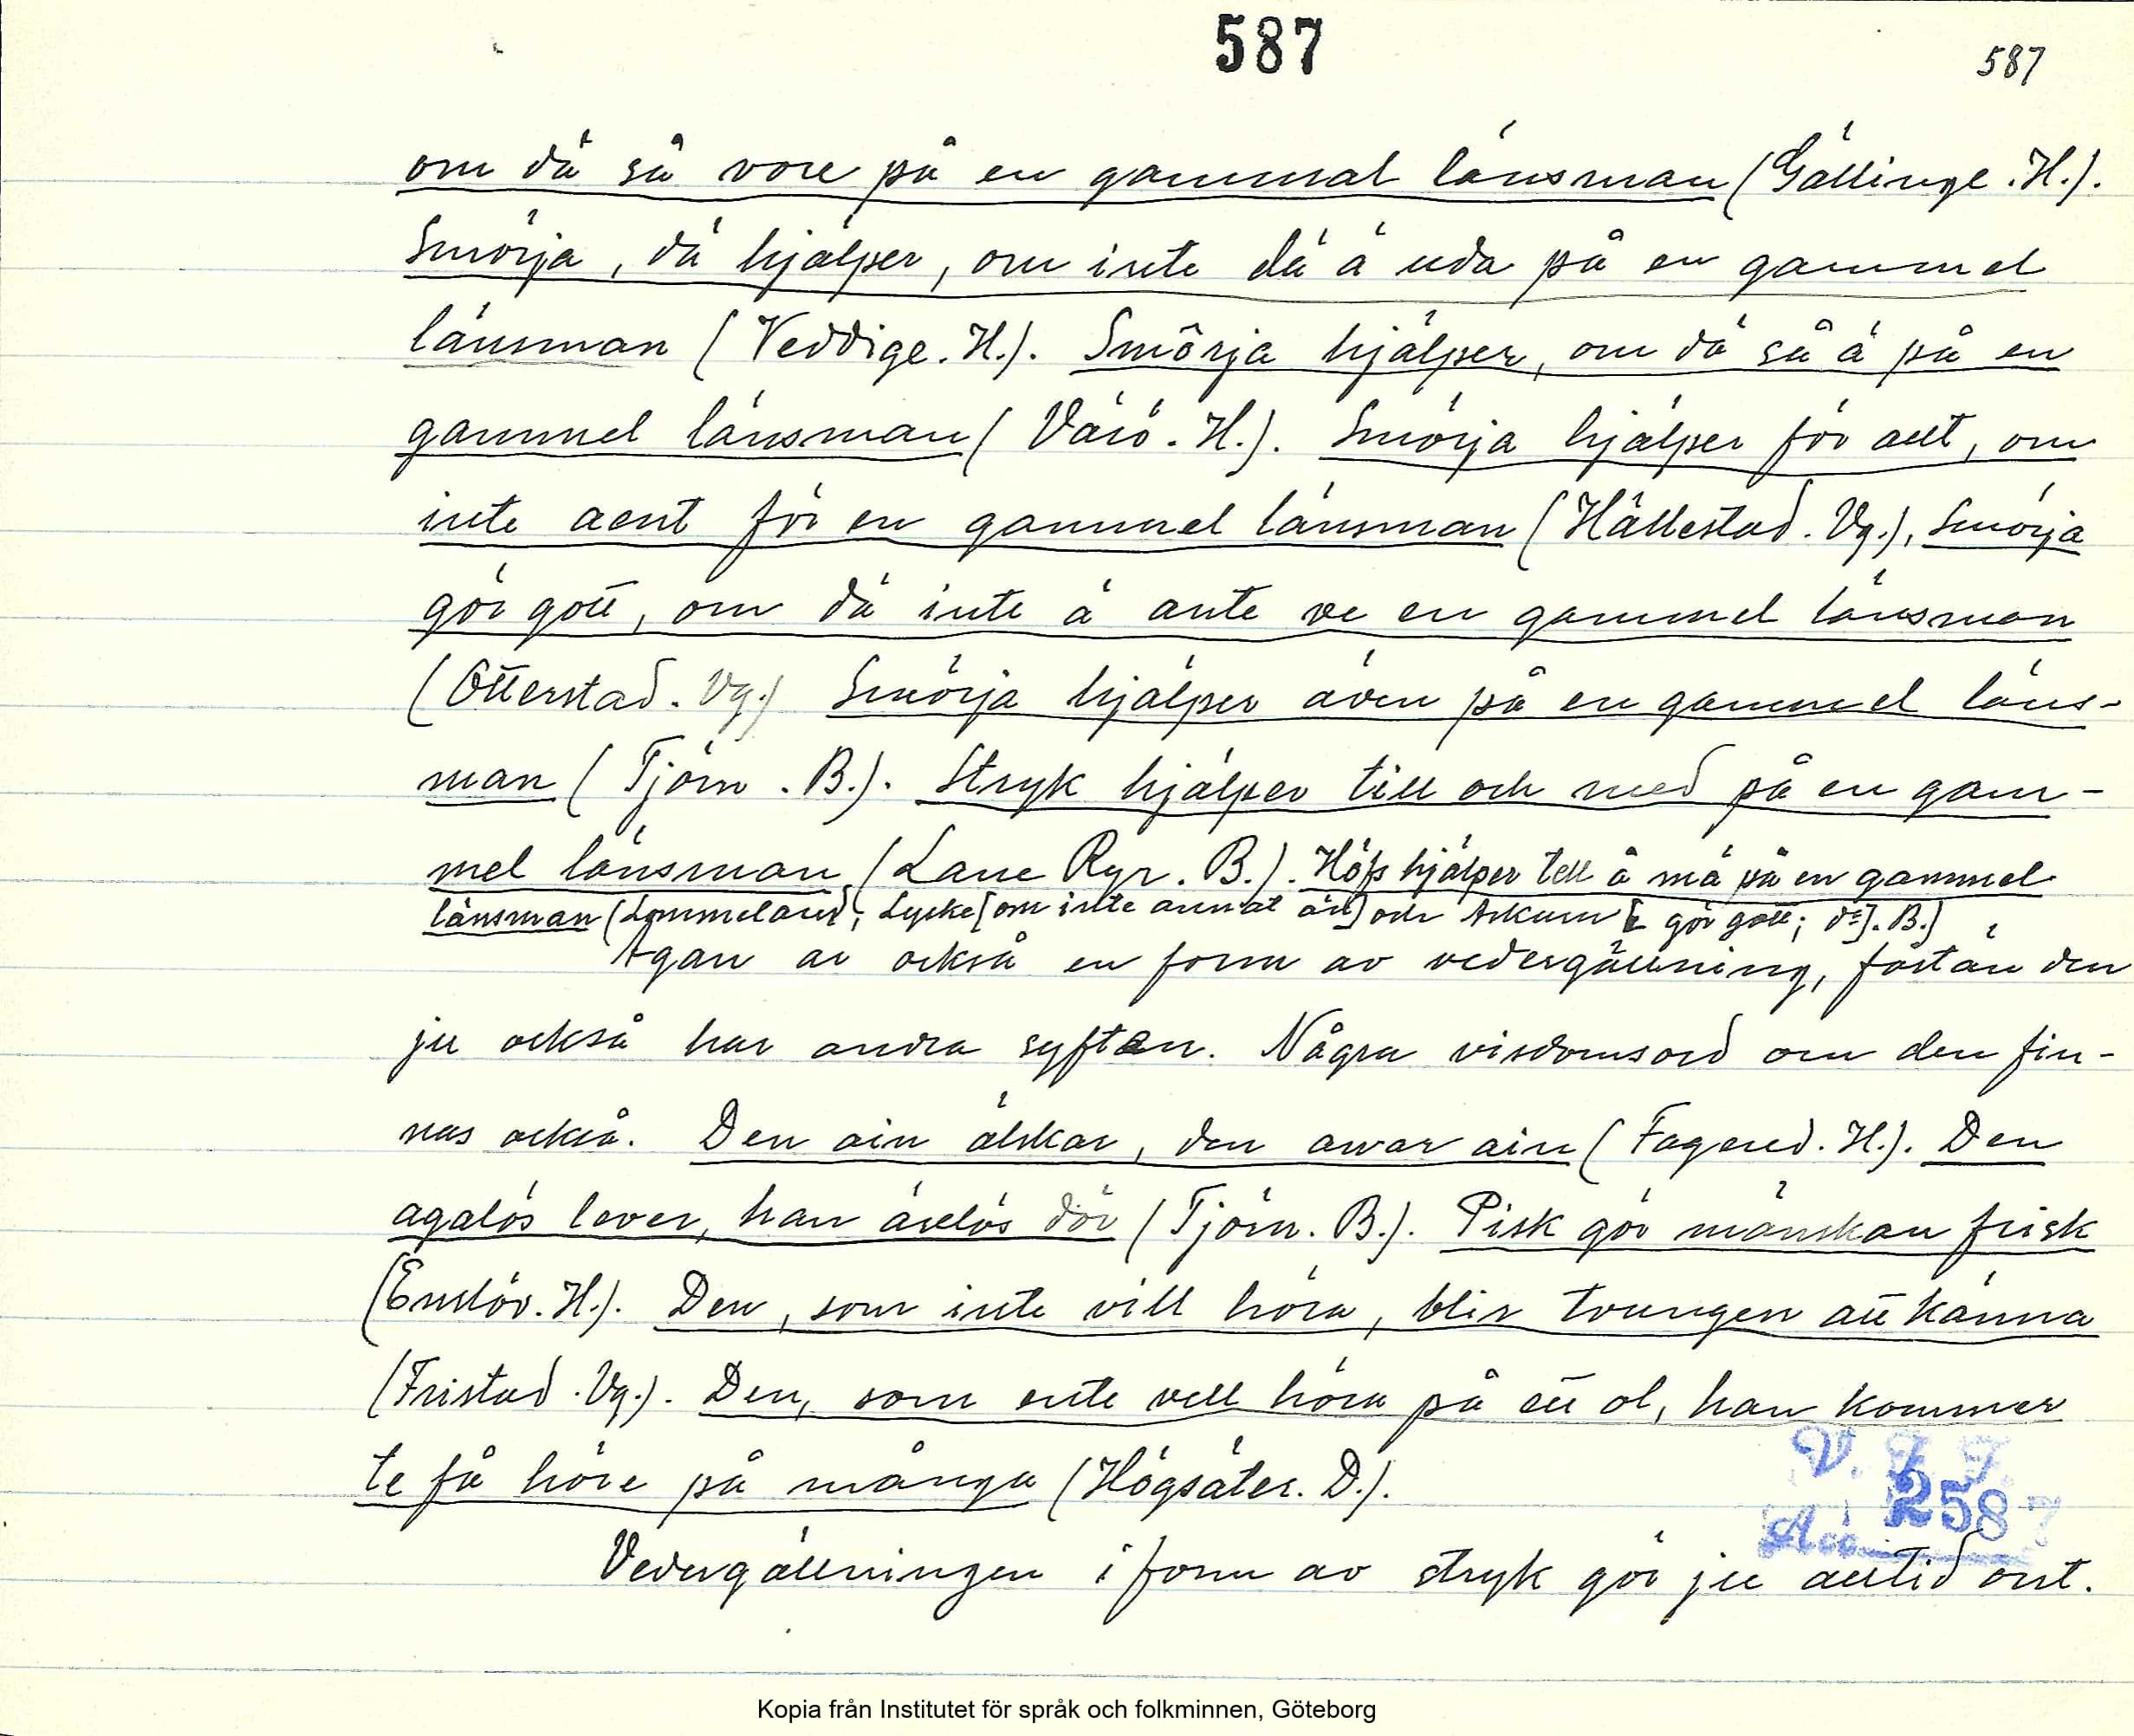 587
587
om dä så vore på en gammal länsman (Gällinge. H.).
Smörja, dä hjälper, om inte dä ä uda på en gammel
länsman (Veddige. H.). Smörja hjälper, om dä så ä på en
gammel länsman (Värö. H.). Smörja hjälper för allt, om
inte aent för en gammel länsman (Hällestad. Vg.), Smörja
gör gott, om dä inte ä ante ve en gammel länsman
(Otterstad. Vg.) Smörja hjälper även på en gammel läns-
man (Tjörn. B.). Stryk hjälper till och med på en gam-
mel länsman (Lane Ryr. B.). Höfs hjälper tell å mä på en gammel
länsman (Lommeland; Lycke [om inte annat än] och Askum [gör gott; do]. B.)
Agan är också en form av vedergällning, fastän den
ju också har andra syften. Några visdomsord om den fin-
nas också. Den ain älskar, den awar ain (Fagered. H.). Den
agalös lever, han ärelös dör (Tjörn. B.). Pisk gör mänskan frisk
(Enslöv. H.). Den, som inte vill höra, blir tvungen att känna
(Fristad. Vg.). Den, som ente vell höra på ett ol, han kommer
te få höre på många (Högsäter. D.).
V. F. F.
Acc. 2587
Vedergällningen i form av stryk gör ju alltid ont.
Kopia från Institutet för språk och folkminnen, Göteborg